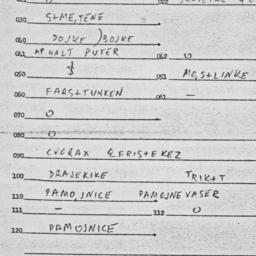 030 S+ME,TENE
040 DOJKE / BOJKE
041 APHALT PUTER 042 O
050 $ 051 MC,S+LINKE
060 FARS+TUNKEN 061 —
070 O
080 O
090 CVCRAX & FRIS+EKEZ
100 DRAJEKIKE TRIK+T
110 PAMOJNICE PAMOJNE VASER
111 — 112 O
120 PAMOJNICE